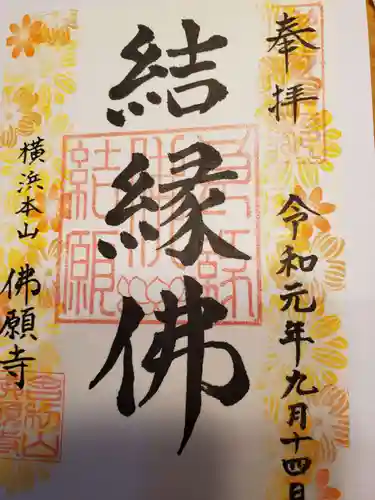 奉拝
令和元年九月十四日
結縁佛
横浜本山
佛願寺